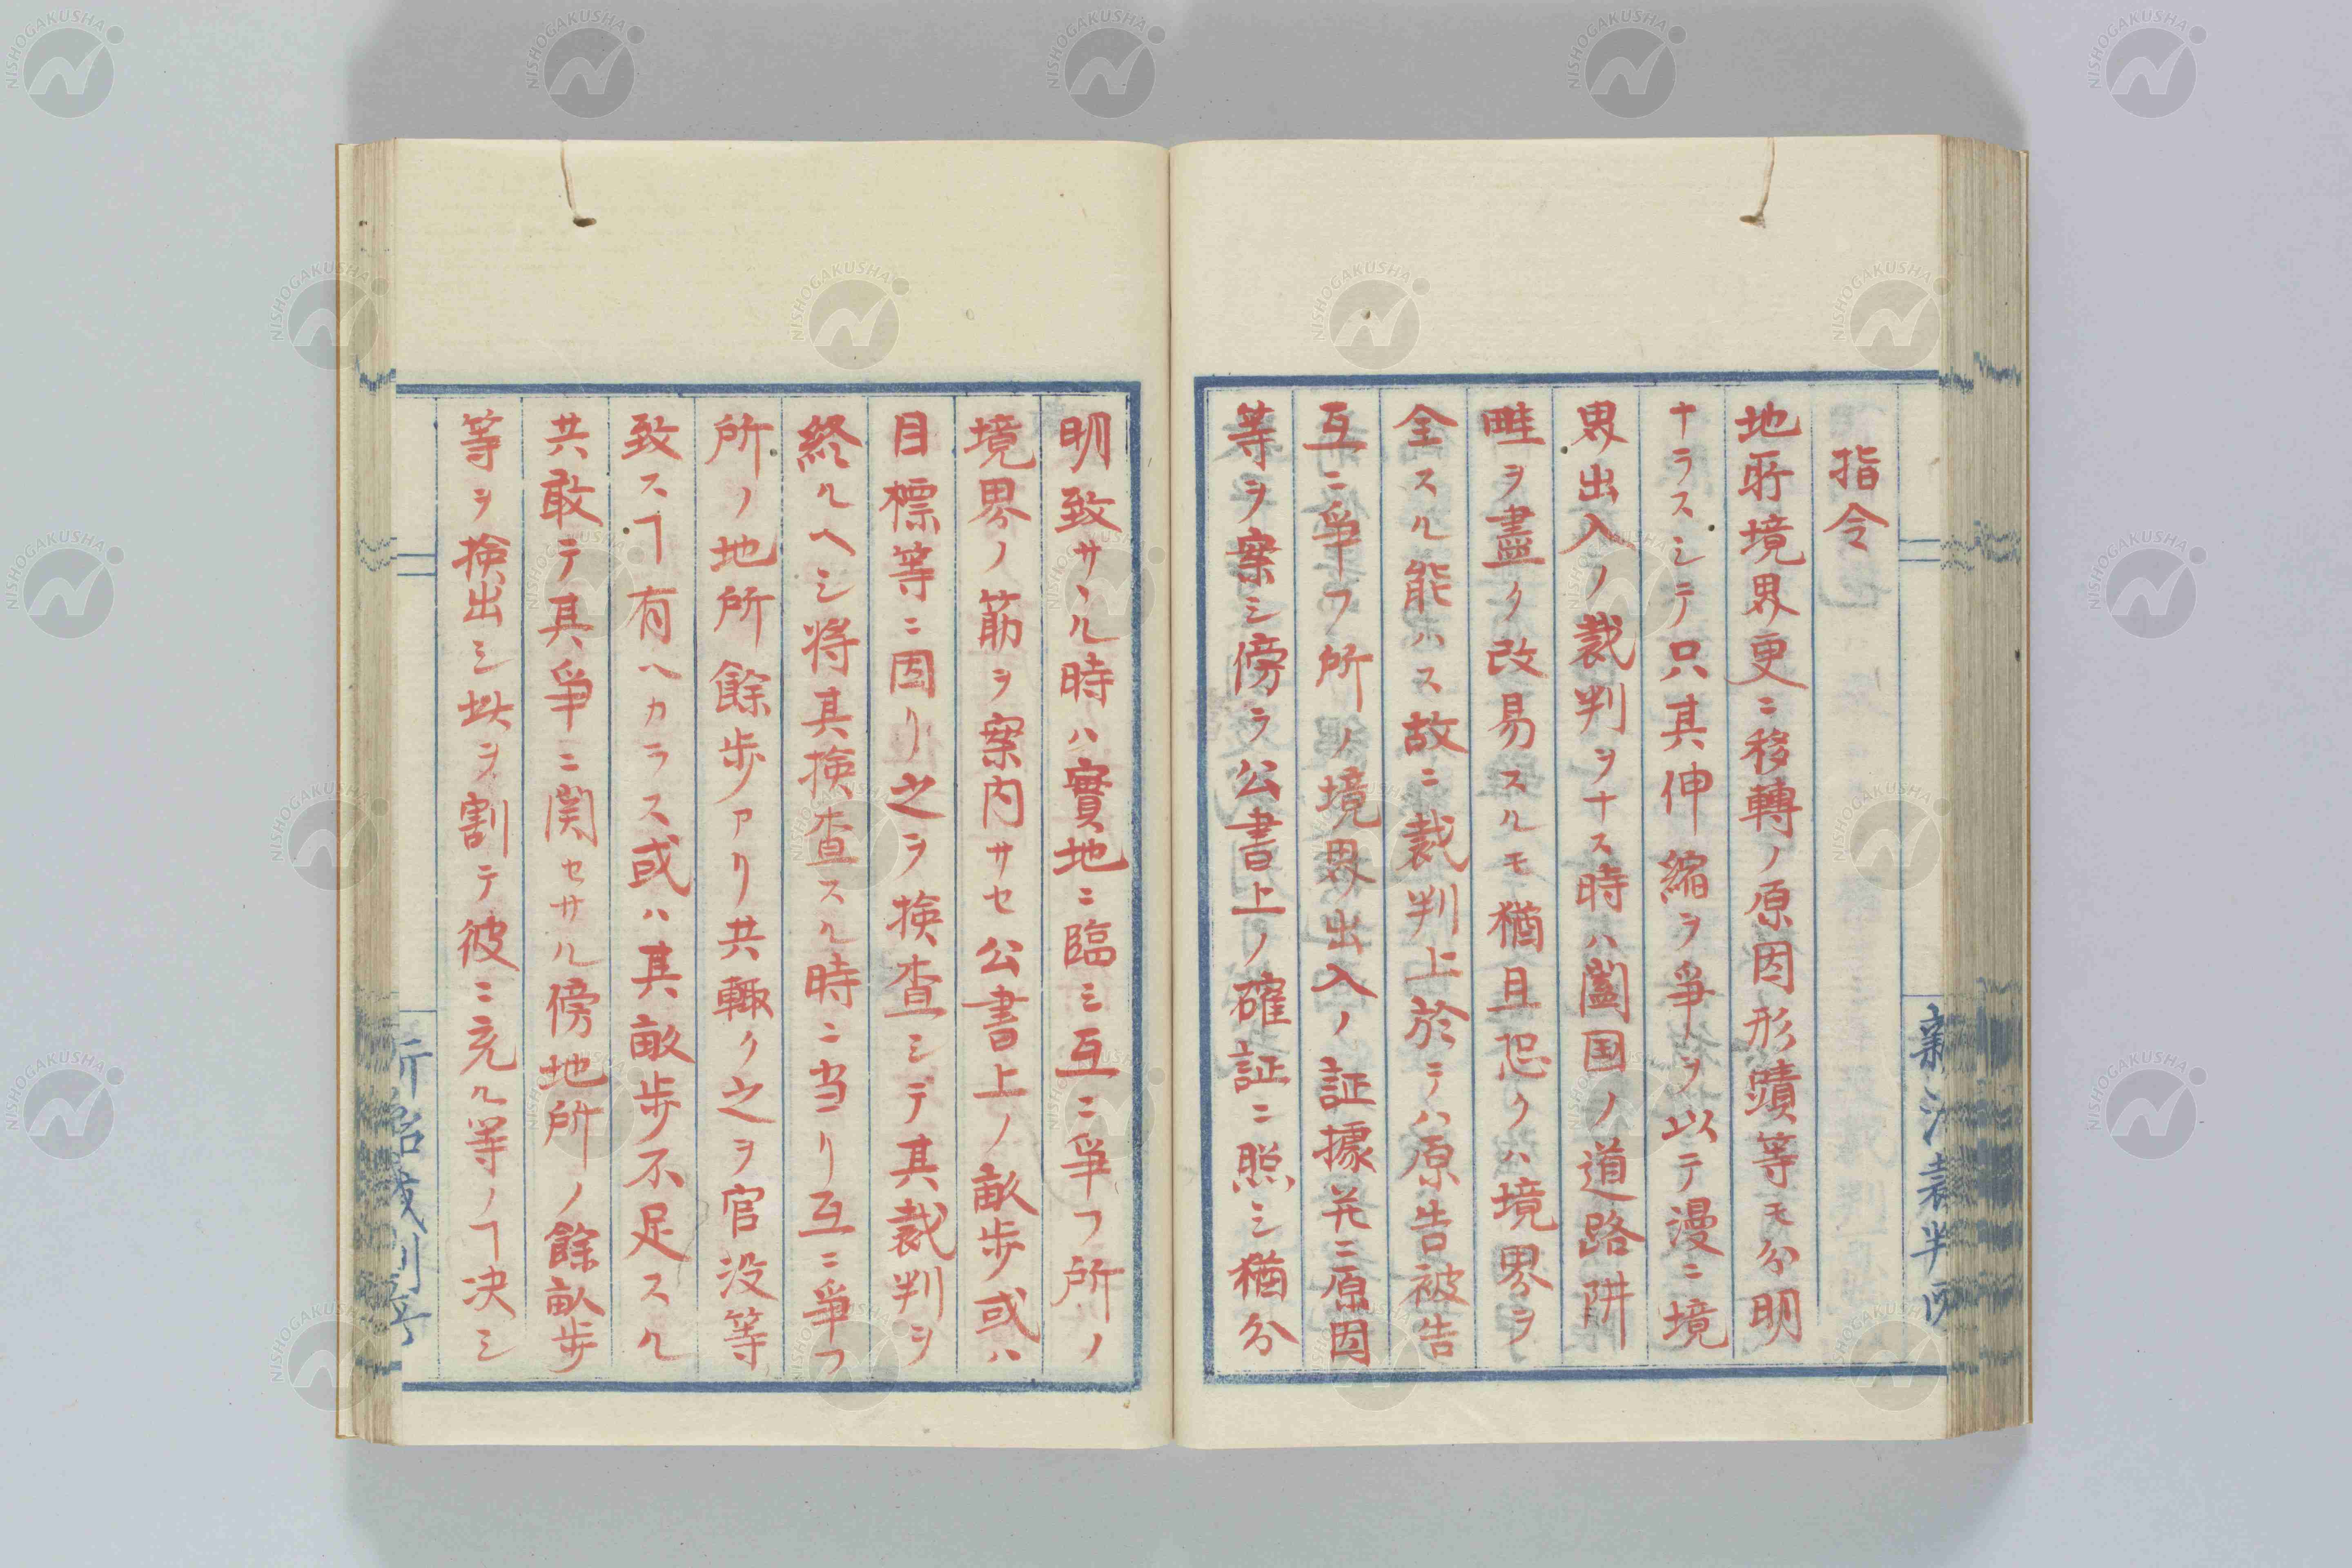 指令
地所境界更ニ移轉ノ原因形蹟等モ分明
ナラスシテ只其伸縮ヲ爭フヲ以テ漫ニ境
界出入ノ裁判ヲナス時ハ闔国ノ道路阱
畦ヲ盡ク改易スルモ猶且恐クハ境界ヲ
全スル能ハス故ニ裁判上於テハ原告被告
互ニ爭フ所ノ境界出入ノ証據并ニ原因
等ヲ案シ傍ラ公書上ノ確証ニ照シ猶分
新治裁判所
明致サヽル時ハ實地ニ臨シ互ニ爭フ所ノ
境界ノ筋ヲ案内サセ公書上ノ畝歩或ハ
目標等ニ因リ之ヲ検査シテ其裁判ヲ
終ルヘシ将其検査スル時ニ当リ互ニ爭フ
所ノ地所餘歩アリ共輙ク之ヲ官没等
致スヿ有ヘカラス或ハ其畝歩不足スル
共敢テ其爭ニ関セサル傍地所ノ餘畝歩
等ヲ検出シ此ヲ割テ彼ニ充ル等ノヿ决シ
新治裁判所
NISHOGAKUSHA